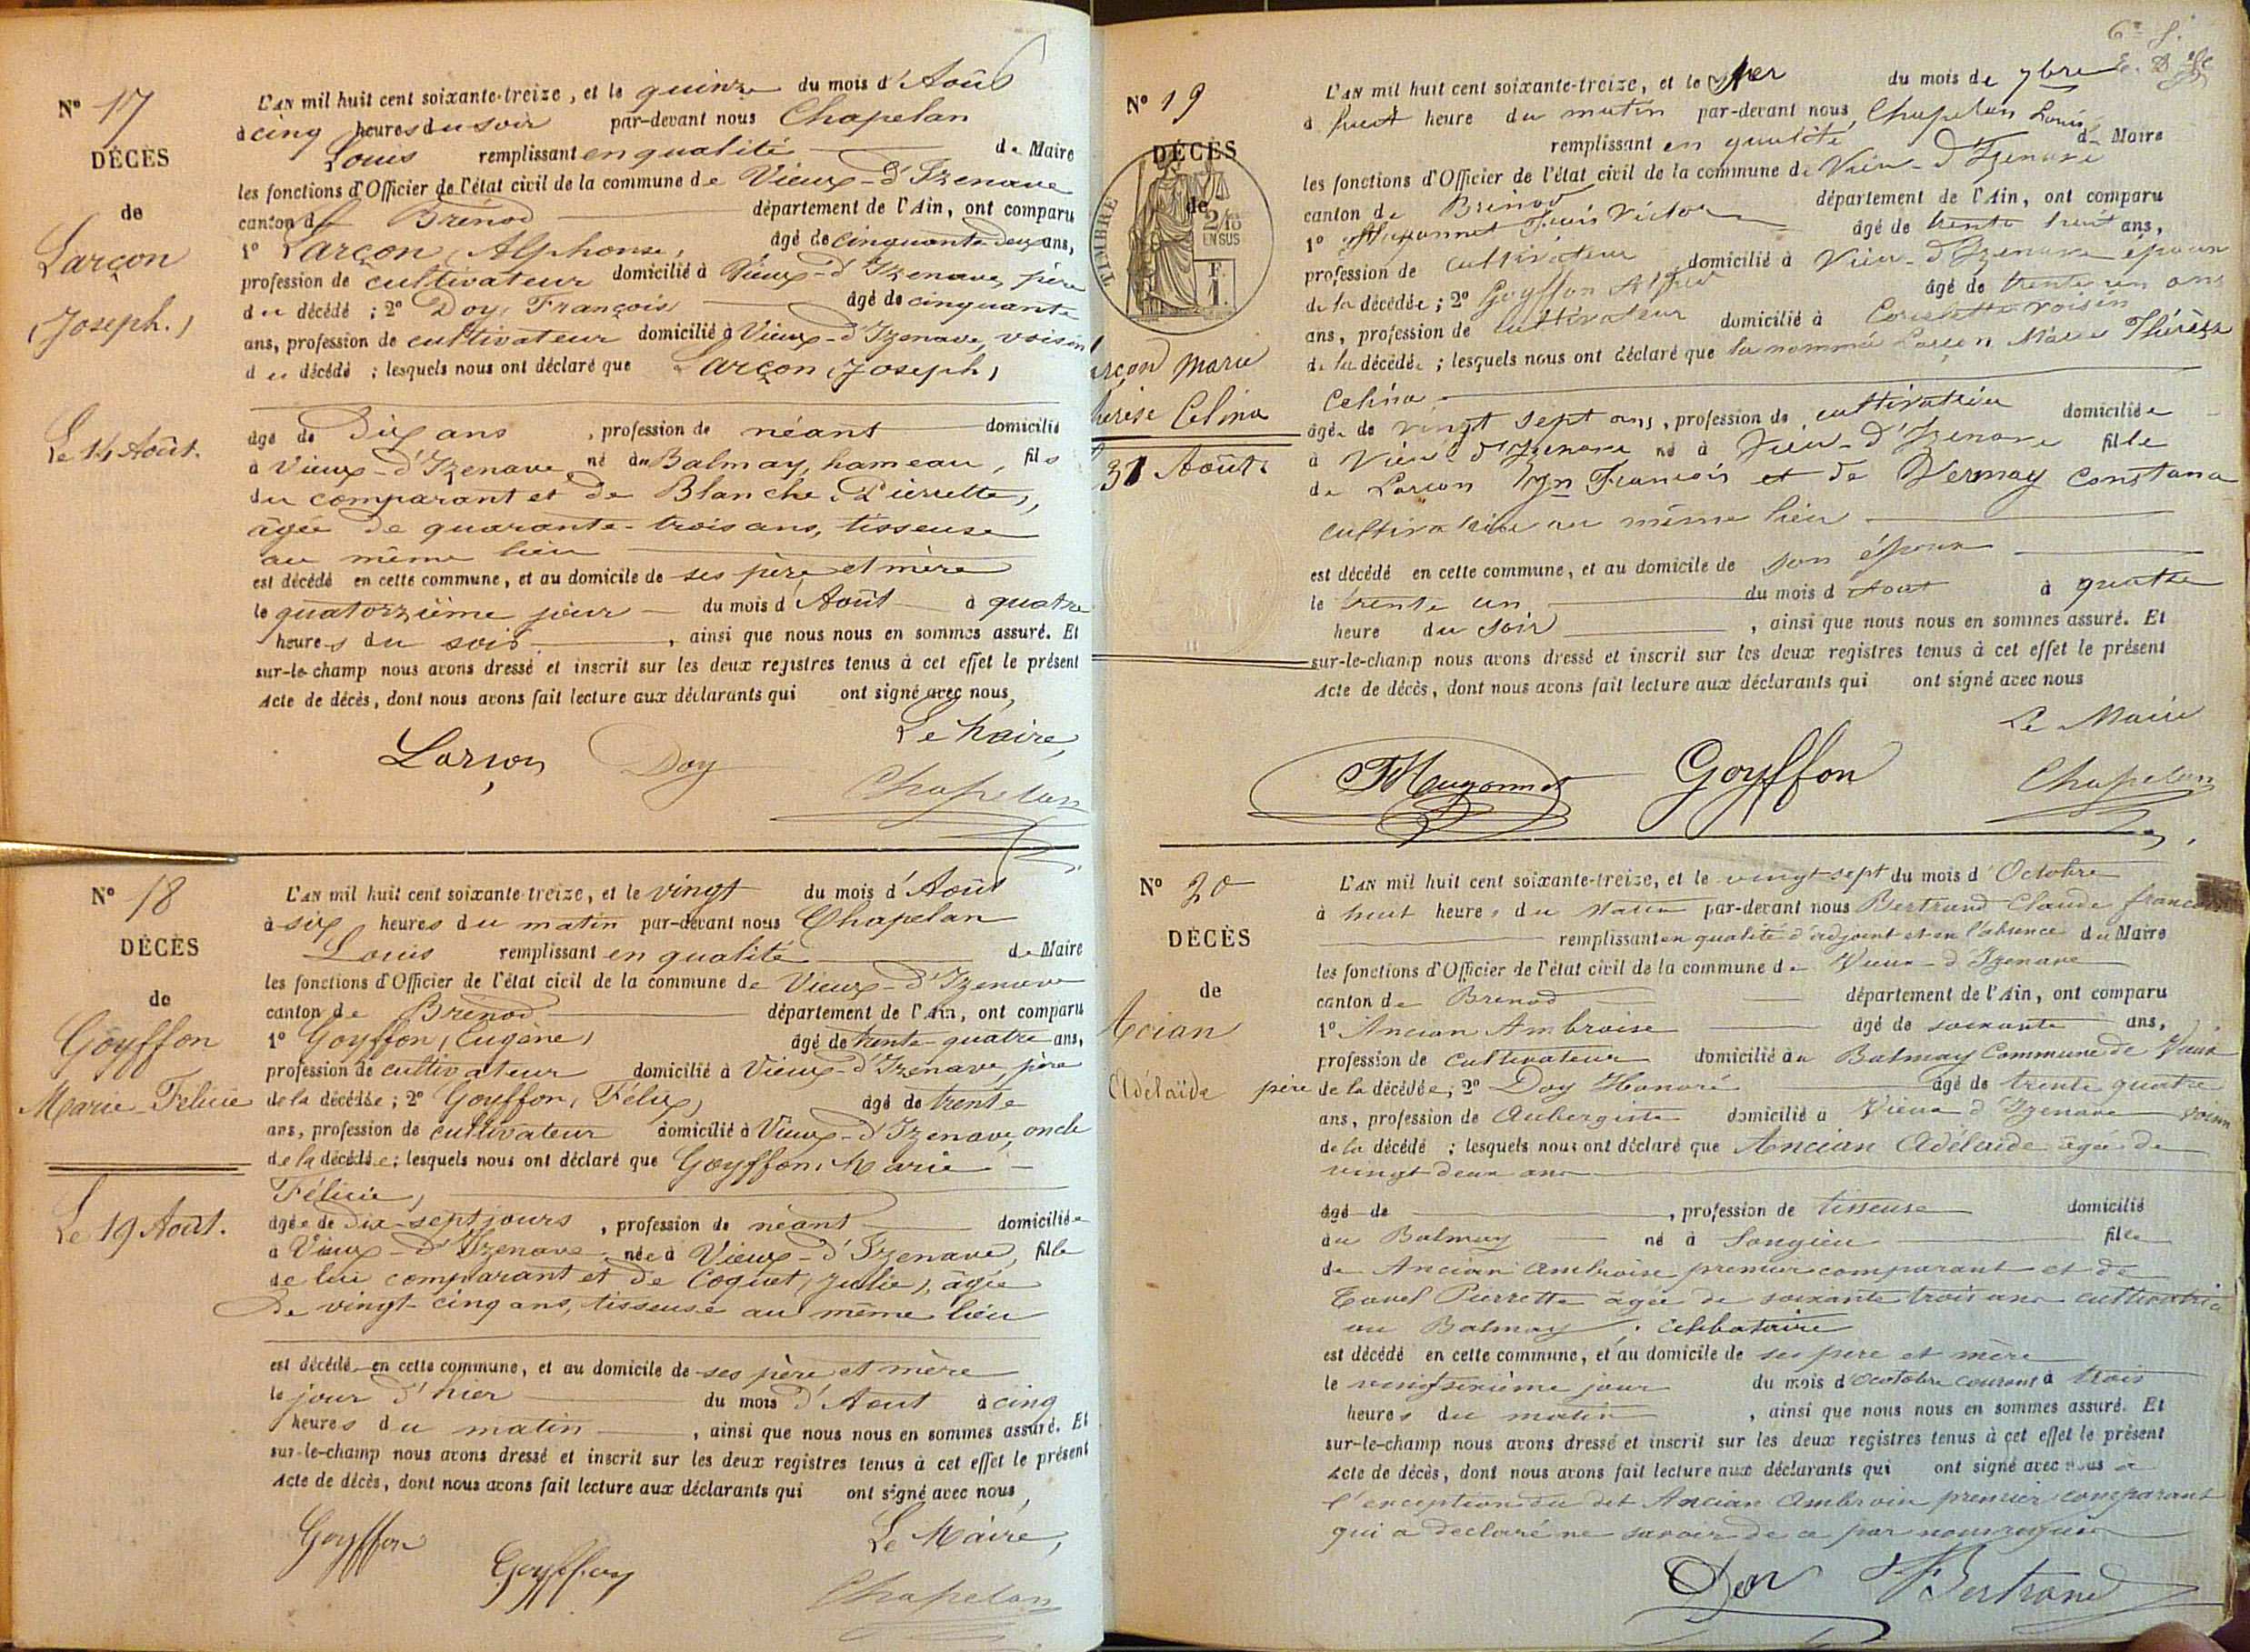 Nº 17
DÉCÈS
de
Larçon
(Joseph.)
Le 14 Août.
L'AN mil huit cent soixante-treize, et le quinze du mois d'Août
à cinq heures du soir par-devant nous Chapelan
Louis remplissant en qualité de Maire
les fonctions d'Officier de l'état civil de la commune de Vieux-d'Izenave
canton de Brénod département de l'Ain, ont comparu
1º Larçon (Alphonse) âgé de cinquante deux ans,
profession de cultivateur domicilié à Vieux-d'Izenave, père
du décédé ; 2º Doy, François âgé de cinquante
ans, profession de cultivateur domicilié à Vieux-d'Izenave, voisin
du décédé ; lesquels nous ont déclaré que Larçon (Joseph)
âgé de Dix ans , profession de néant domicilié
à Vieux-d'Izenave né au Balmay, hameau, fils
du comparant et de Blanche (Pierrette),
âgée de quarante-trois ans, tisseuse
au même lieu
est décédé en cette commune, et au domicile de ses père et mère
le quatorzième jour du mois d'Août à quatre
heures du soir , ainsi que nous nous en sommes assuré. Et
sur-le-champ nous avons dressé et inscrit sur les deux registres tenus à cet effet le présent
Acte de décès, dont nous avons fait lecture aux déclarants qui ont signé avec nous,
Le Maire,
Larçon Doy Chapelan
Nº 18
DÉCÈS
de
Goyffon
Marie Félicie
Le 19 Août.
L'AN mil huit cent soixante-treize, et le vingt du mois d'Août
à six heures du matin par-devant nous Chapelan
Louis remplissant en qualité de Maire
les fonctions d'Officier de l'état civil de la commune de Vieux-d'Izenave
canton de Brénod département de l'Ain, ont comparu
1º Goyffon (Eugène) âgé de trente-quatre ans,
profession de cultivateur domicilié à Vieux-d'Izenave, père
de la décédée ; 2º Goyffon, (Félix) âgé de trente
ans, profession de cultivateur domicilié à Vieux-d'Izenave, oncle
de la décédée ; lesquels nous ont déclaré que Goyffon, Marie
Félicie)
âgée de Dix-sept jours , profession de néant domiciliée
à Vieux-d'Izenave née à Vieux-d'Izenave, fille
de lui comparant et de Coquet (Julie), âgée
De vingt-cinq ans, tisseuse au même lieu
est décédée en cette commune, et au domicile de ses père et mère
le jour d'hier du mois d'Aout à cinq
heures du matin , ainsi que nous nous en sommes assuré. Et
sur-le-champ nous avons dressé et inscrit sur les deux registres tenus à cet effet le présent
Acte de décès, dont nous avons fait lecture aux déclarants qui ont signé avec nous,
Le Maire,
Goyffon Goyffon Chapelan
6e f.
Nº 19
DÉCÈS
de
TIMBRE
2/10
EN SUS
F.
1.
arçon Marie
herèse Celina
31 Août
L'AN mil huit cent soixante-treize, et le 1er du mois de 7bre
à huit heure du matin par-devant nous Chapelan Louis
remplissant en qualité de Maire
les fonctions d'Officier de l'état civil de la commune de Vieu-d'Izenave
canton de Brénod département de l'Ain, ont comparu
1º Mugonnet Louis Victor âgé de trente huit ans,
profession de cultivateur domicilié à Vieu-d'Izenave époux
de la décédée ; 2º Goyffon Alfred âgé de trente un ans
ans, profession de cultivateur domicilié à Corcelette voisin
de la décédée ; lesquels nous ont déclaré que la nommé Larçon Marie Thérèse
Celina
âgée de vingt sept ans, profession de cultivatrice domiciliée
à Vieu-d'Izenave né à Vieu-d'Izenave fille
de Larçon François et de Dermay Constance
cultivatrice au même lieu
est décédé en cette commune, et au domicile de son époux
le trente un du mois d Aout à quatre
heure du soir , ainsi que nous nous en sommes assuré. Et
sur-le-champ nous avons dressé et inscrit sur les deux registres tenus à cet effet le présent
Acte de décès, dont nous avons fait lecture aux déclarants qui ont signé avec nous
Le Maire
Mugonnet Goyffon Chapelan
Nº 20
DÉCÈS
de
Ancian
Adélaïde
L'AN mil huit cent soixante-treize, et le vingt-sept du mois d'Octobre
à huit heures du Matin par-devant nous Bertrand Claude françois
remplissant en qualité d'adjoint et en l'absence du Maire
les fonctions d'Officier de l'état civil de la commune de Vieux-d'Izenave
canton de Brenod département de l'Ain, ont comparu
1º Ancian Ambroise âgé de soixante ans,
profession de Cultivateur domicilié au Balmay Commune de Vieux
père de la décédée ; 2º Doy Honoré âgé de trente quatre
ans, profession de Aubergiste domicilié à Vieux d'Izenave voisin
de la décédé ; lesquels nous ont déclaré que Ancian Adélaïde âgée de
vingt deux ans
âgé de , profession de tisseuse domicilié
au Balmay né à Songieu fille
de Ancian Ambroise premier comparant et de
Pierrette âgée de soixante trois ans cultivatrice
au Balmay, célibataire
est décédé en cette commune, et au domicile de ses père et mère
le vingt sixième jour du mois d'Octobre courant à trois
heures du matin , ainsi que nous nous en sommes assuré. Et
sur-le-champ nous avons dressé et inscrit sur les deux registres tenus à cet effet le présent
Acte de décès, dont nous avons fait lecture aux déclarants qui ont signé avec nous à
l'exception du dit Ancian Ambroise premier comparant
qui a déclaré ne savoir de ce par nous requis
Doy Bertrand